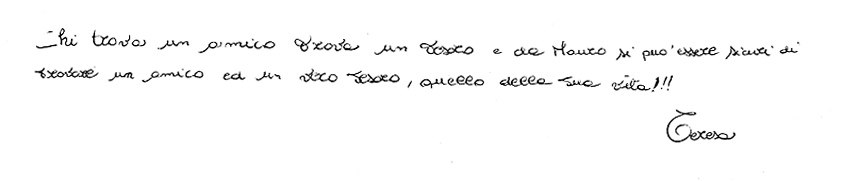 Chi trova un amico trova un tesoro e da Mauro si puo' essere sicuri di
trovare un amico ed un vero tesoro, quello della sua vita!!!
Teresa